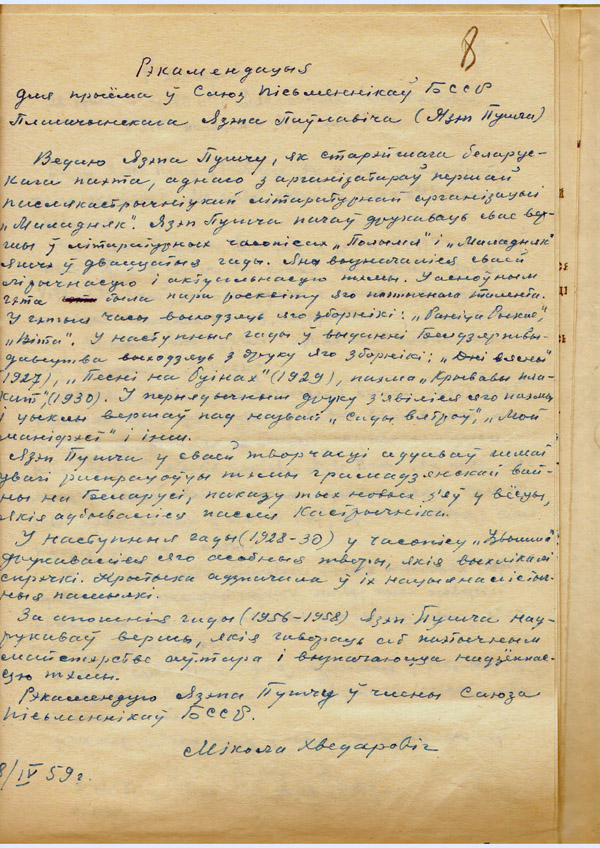 8
Рэкамендацыя
для прыёма ў Саюз пісьменнікаў БССР
Плашчынскага Язэпа Паўлавіча (Язэп Пушча)
Ведаю Язэпа Пушчу, як старэйшага беларус-
кага паэта, аднаго з арганізатараў першай
паслякастрычніцкай літаратурнай арганізацыі
„Маладняк". Язэп Пушча пачаў друкаваць свае вер-
шы ў літаратурных часопісах „Полымя" і „Маладняк"
яшчэ ў дваццатыя гады. Яны вызначаліся сваёй
лірычнасцю і актуальнасцю тэмы. У асноўным
гэта была пара росквіту яго паэтычнага таланта.
У гэтыя часы выходзяць яго зборнікі: „Раніца рыкае",
„Віта". У наступныя гады ў выданні Белдзяржвы-
давецтва выходзяць з друку яго зборнікі: „Дні вясны"
(1927), „Песні на руінах" (1929), паэма „Крывавы пла-
кат" (1930). У перыядычным друку з'явіліся яго паэмы
і цыклы вершаў пад назвай „Сады вятроў", „Мой
маніфест" і інш.
Язэп Пушча у сваёй творчасці аддаваў нямала
увагі распрацоўцы тэмы грамадзянскай вай-
ны на Беларусі, паказу тых новых з'яў у вёсцы,
якія адбываліся пасля Кастрычніка.
У наступныя гады (1928-30) у часопісу „Узвышша"
друкаваліся яго асобныя творы, якія выклікалі
спрэчкі. Крытыка адзначала ў іх нацыяналісіч-
ныя памылкі.
За апошнія гады (1956-1958) Язэп Пушча над-
рукаваў вершы, якія гавораць аб паэтычным
майстэрстве аўтара і вызначаюцца надзённас-
цю тэмы.
Рэкамендую Язэпа Пушчу ў члены Саюза
пісьменнікаў БССР.
Мікола Хведаровіч
8/IV 59 г.